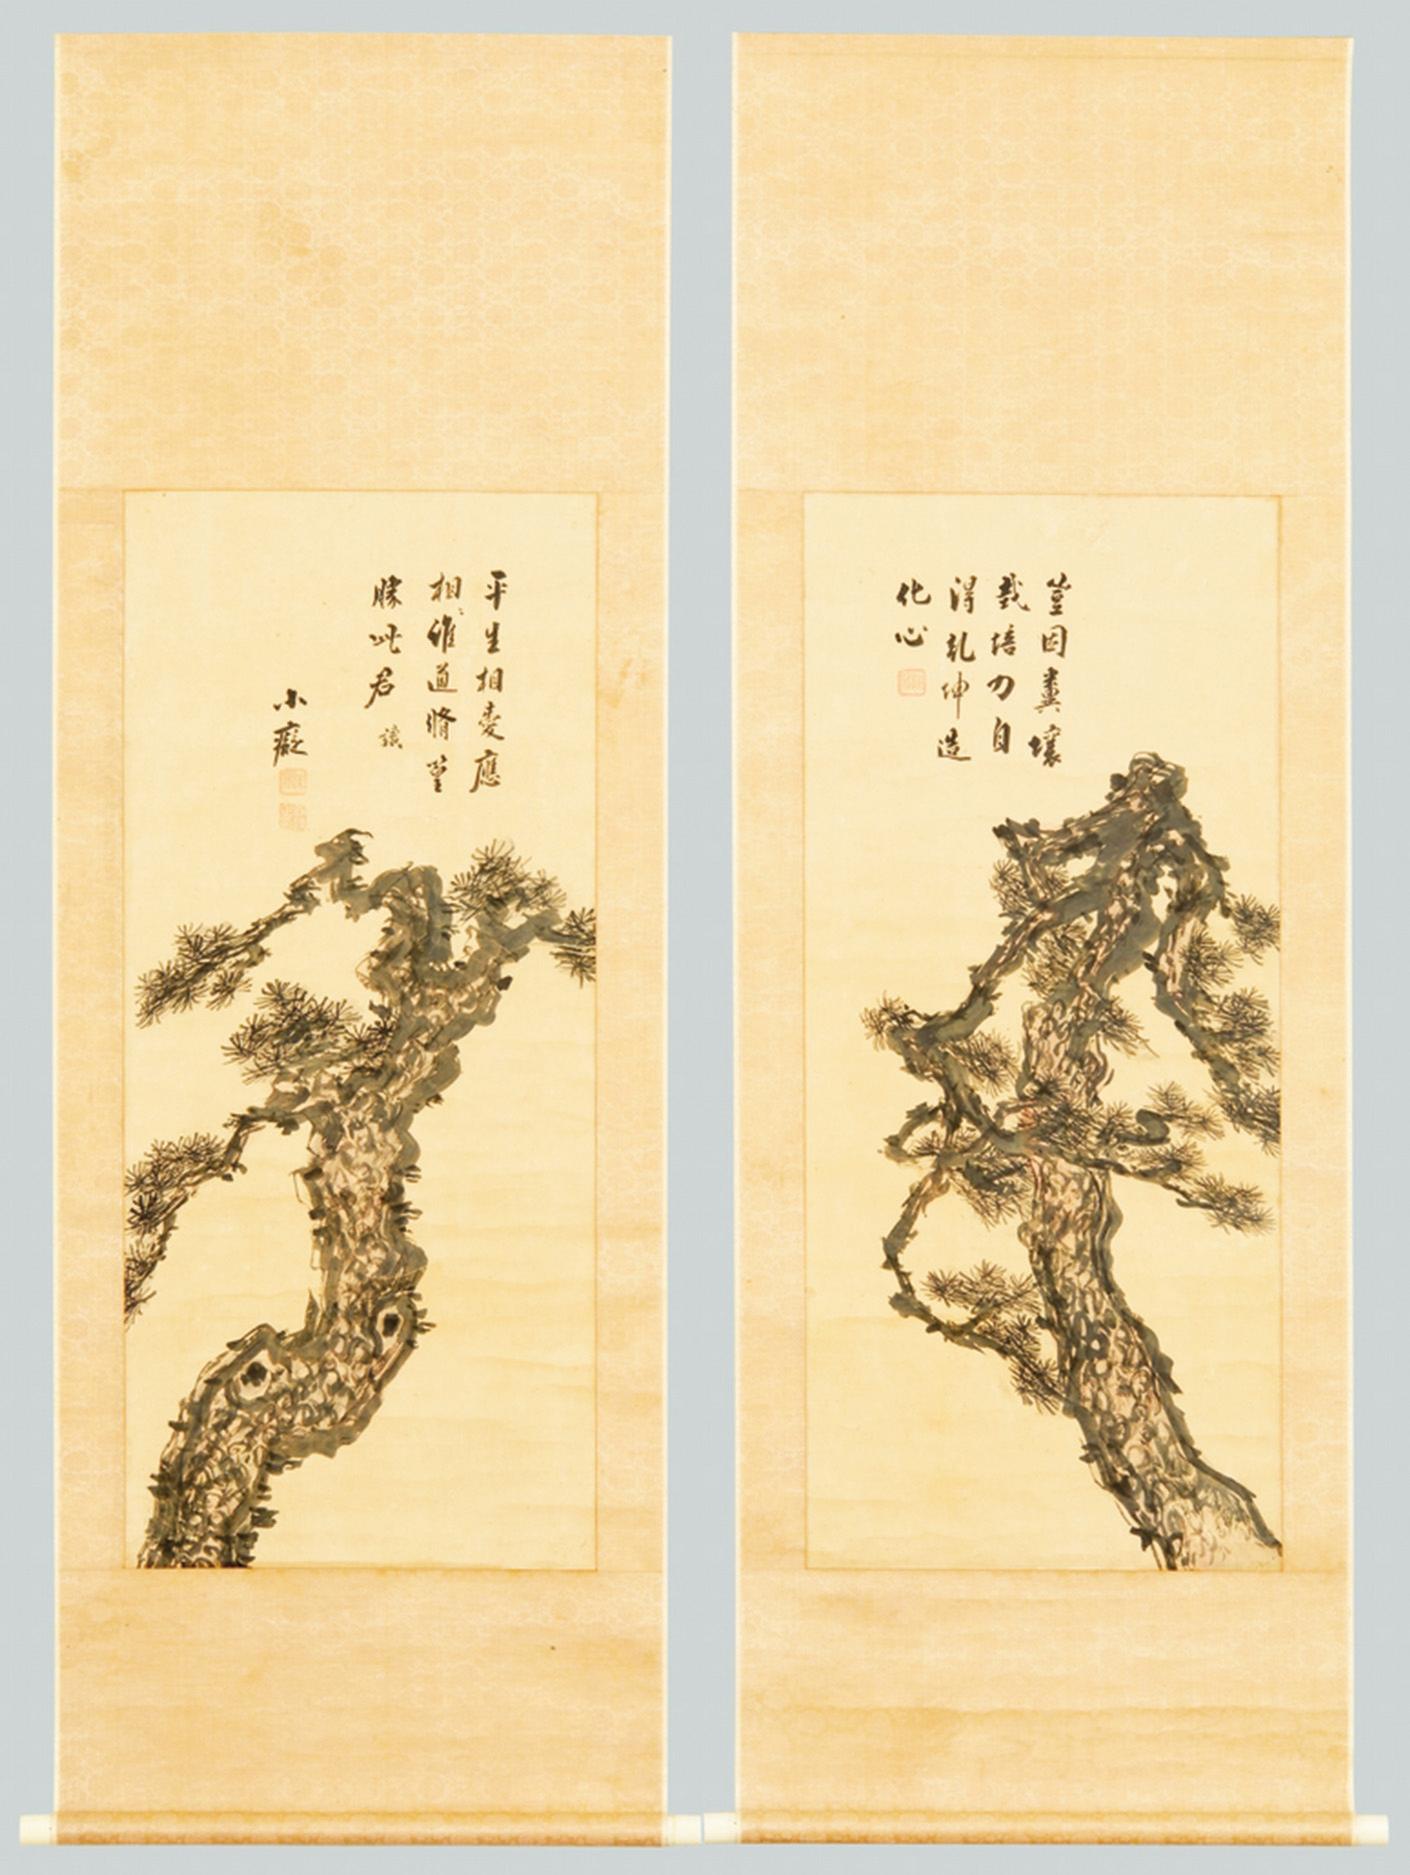 豈因糞壤
栽培力自
得乾坤造
化心
平生相愛應
相〻唯道脩篁
勝此君
小癡